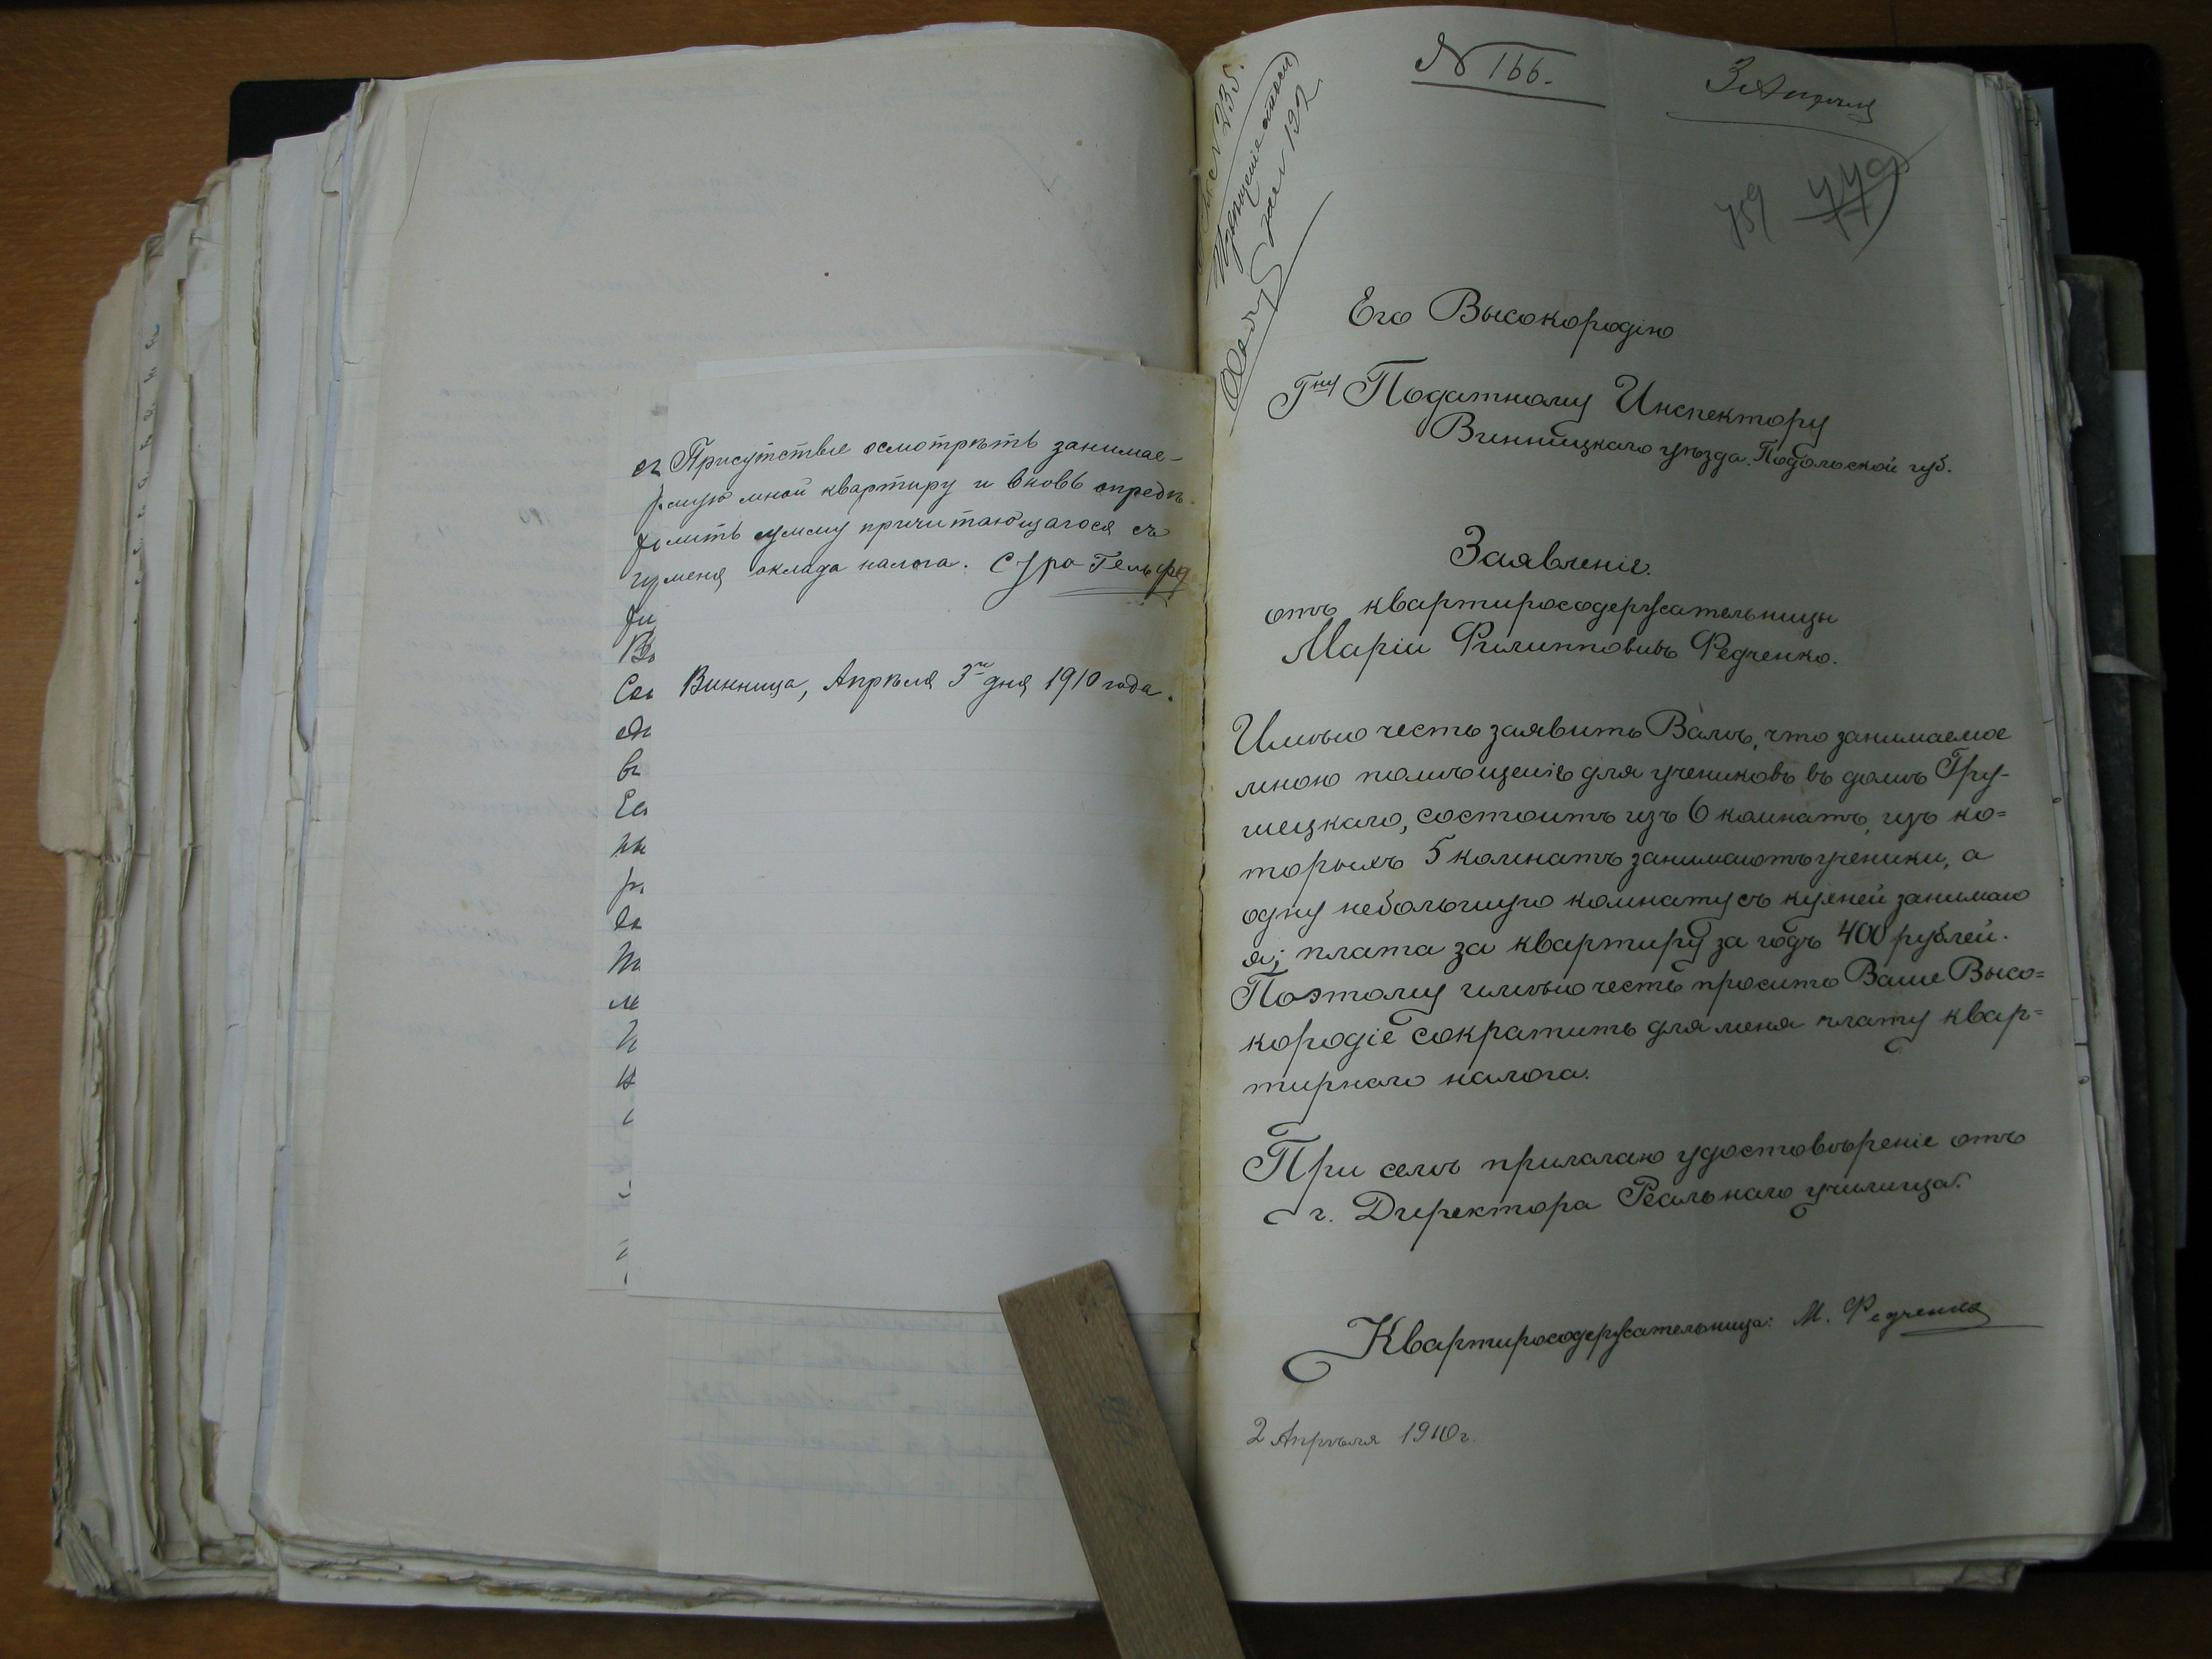 Присутствие осмотрѣть занимае-
мую мной квартиру и вновь опредѣ-
лить сумму причитающагося съ
меня оклада налога. Сура Гельфа
Винница, Апрѣля 3го дня 1910 года.
№ 166.
3 Апрѣля
759 779
№ 235.
132
Его Высокородію
Гну Податному Инспектору
Винницкаго уѣзда. Подольской губ.
Заявленіе.
отъ квартиросодержательницы
Маріи Филипповнѣ Федченко.
Имѣю честь заявить Вамъ, что занимаемое
мною помѣщеніе для учениковъ въ домѣ Гру-
шецкаго, состоитъ изъ 6 комнатъ, изъ ко=
торыхъ 5 комнатъ занимаютъ ученики, а
одну небольшую комнату съ кухней занимаю
я; плата за квартиру за годъ 400 рублей.
Поэтому имѣю честь просить Ваше Высо=
кородіе сократить для меня плату квар=
тирнаго налога.
При семъ прилагаю удостовѣреніе отъ
г. Директора Реальнаго училища.
Квартиросодержательница: М. Федченко
2 Апрѣля 1910 г.